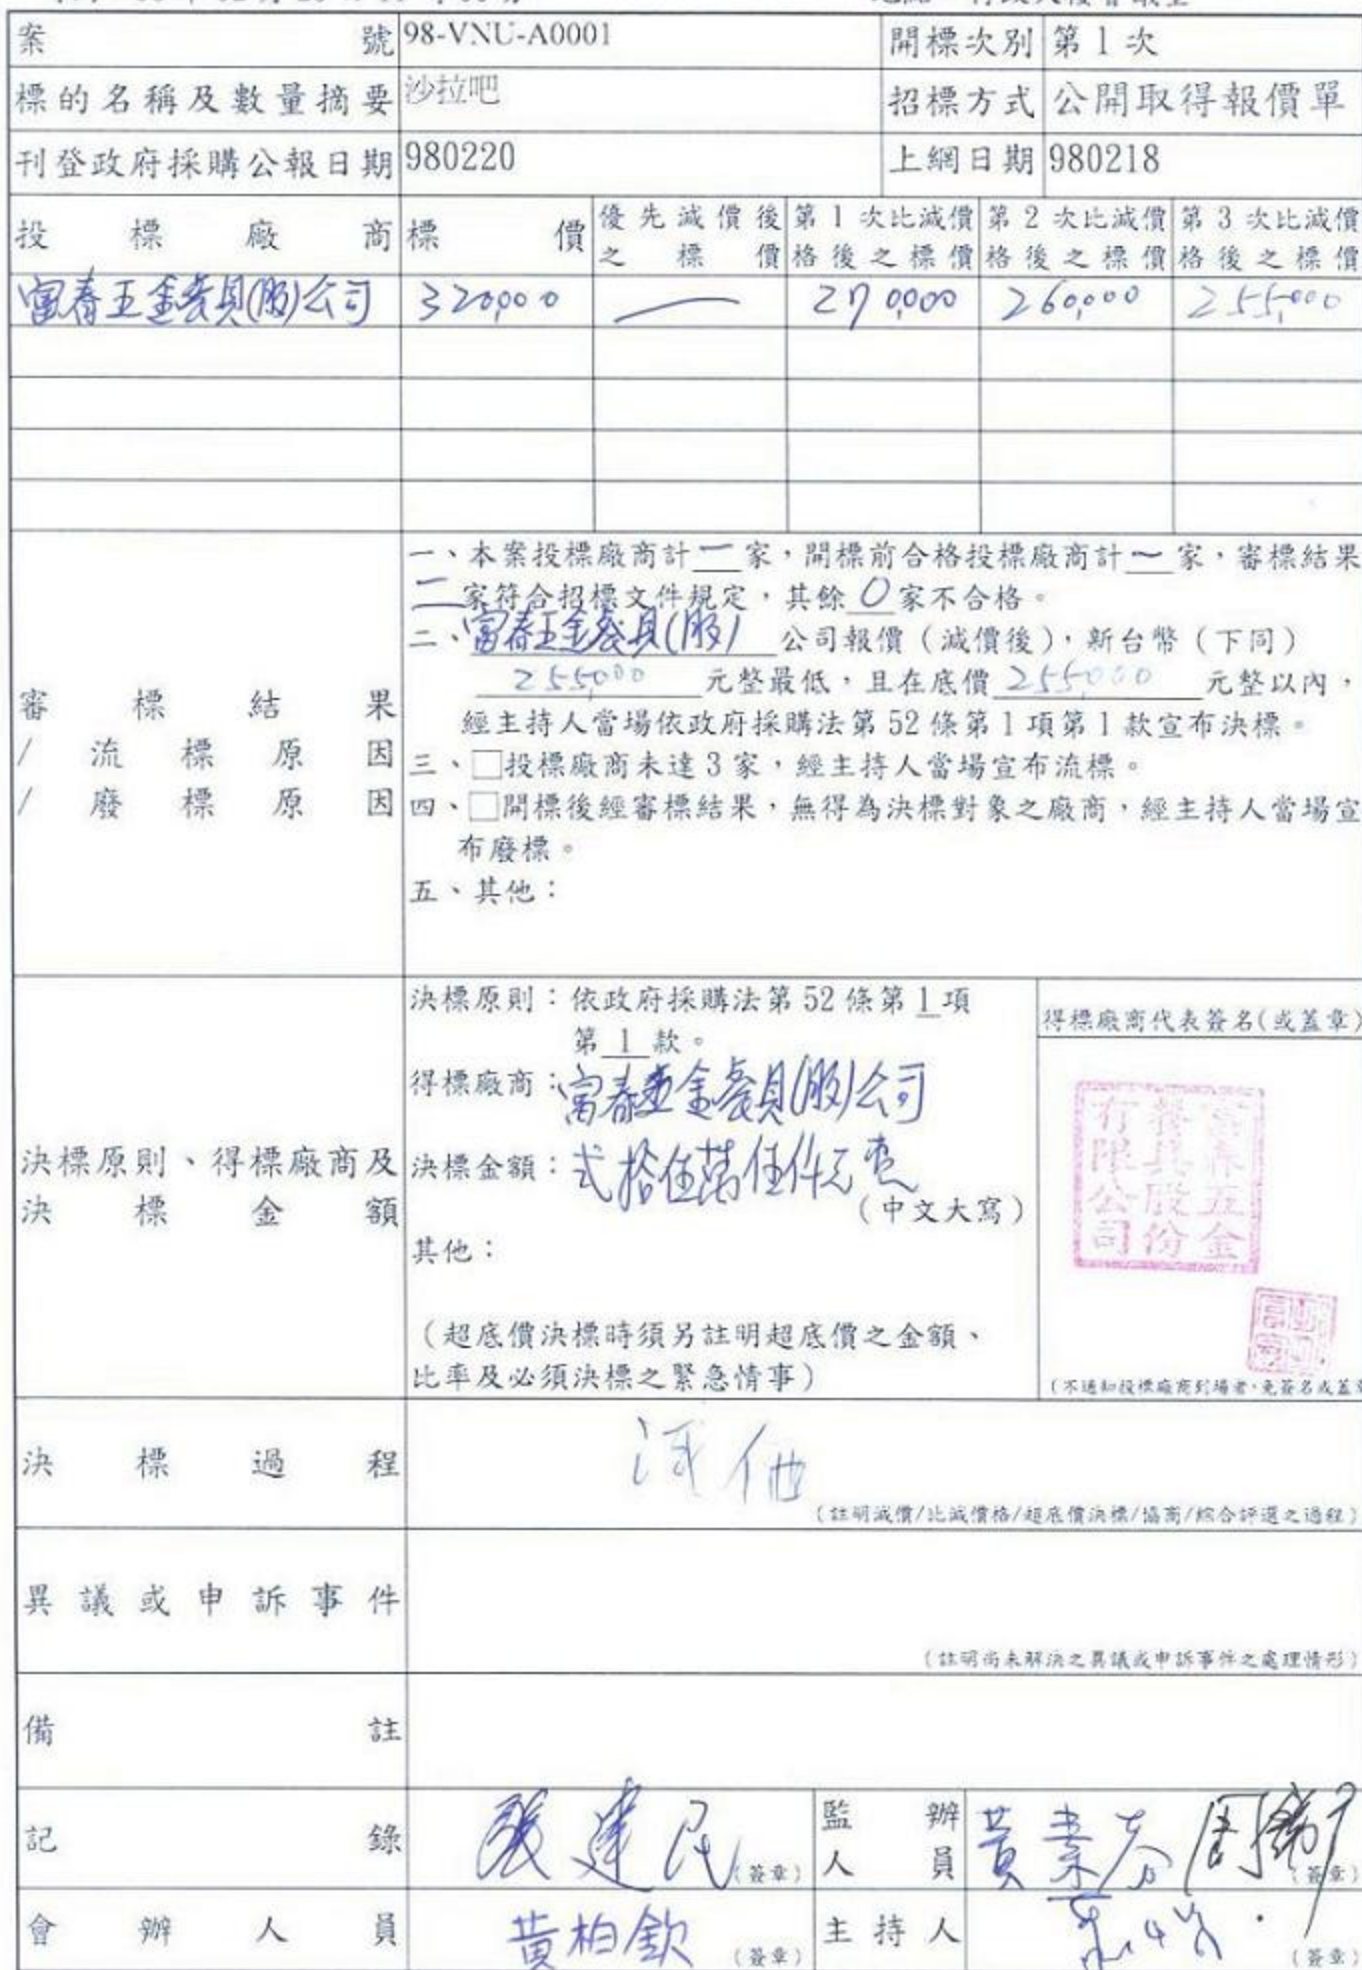 案號 98-VNU-A0001 開標次別 第1次
標的名稱及數量摘要 沙拉吧 招標方式 公開取得報價單
刊登政府採購公報日期 980220 上網日期 980218
投標廠商 標價 優先減價後之標價 第1次比減價格後之標價 第2次比減價格後之標價 第3次比減價格後之標價
富春五金餐具(股)公司 320,000 — 270,000 260,000 255,000
審標結果/流標原因/廢標原因
一、本案投標廠商計一家,開標前合格投標廠商計一家,審標結果
一家符合招標文件規定,其餘0家不合格。
二、富春五金餐具(股)公司報價(減價後),新台幣(下同)
255,000元整最低,且在底價255,000元整以內,
經主持人當場依政府採購法第52條第1項第1款宣布決標。
三、□投標廠商未達3家,經主持人當場宣布流標。
四、□開標後經審標結果,無得為決標對象之廠商,經主持人當場宣
布廢標。
五、其他:
決標原則、得標廠商及決標金額
決標原則:依政府採購法第52條第1項
第1款。
得標廠商:富春五金餐具(股)公司
決標金額:弍拾伍萬伍仟元整
(中文大寫)
其他:
(超底價決標時須另註明超底價之金額、
比率及必須決標之緊急情事)
得標廠商代表簽名(或蓋章)
富春五金
餐具股份
有限公司
(不通知投標廠商到場者,免簽名或蓋章
決標過程 減価
(註明減價/比減價格/超底價決標/協商/綜合評選之過程)
異議或申訴事件
(註明尚未解決之異議或申訴事件之處理情形)
備註
記錄 張建民(簽章) 監辦人員 黃素芬(簽章)
會辦人員 黃柏欽(簽章) 主持人(簽章)